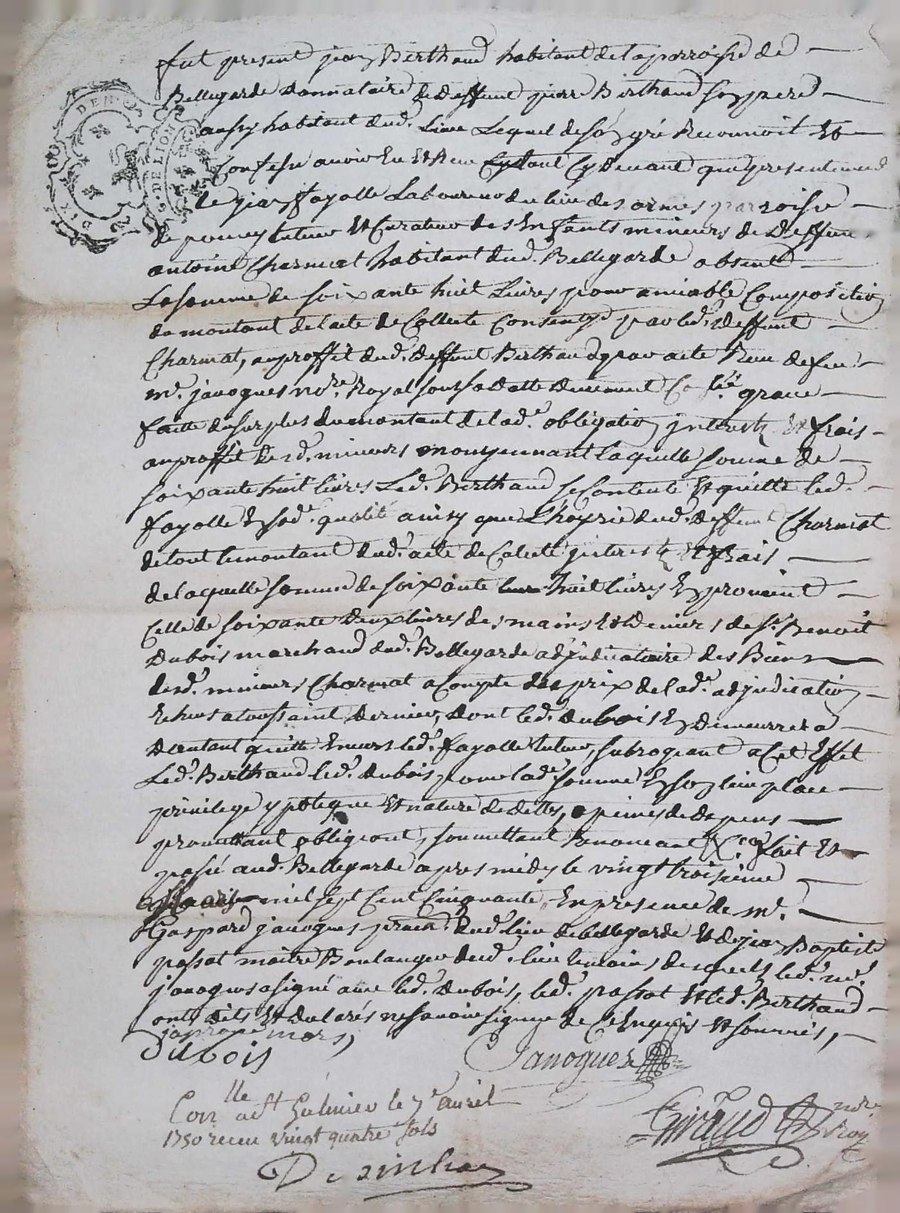 fut present jean Berthaud habitant de la parroisse de
Bellegarde donnataire de deffunt pierre Berthaud son pere
aussy habitant dud. lieu lequel de son gré reconnoit et
confesse avoir eu et receu cy devant que presentement
de jean fayolle laboureur du lieu des ormes parroisse
de poncey tuteur et curateur des enfants mineurs de deffunt
antoine Charmat habitant dud. Bellegarde absent
la somme de soixante huit livres pour amiable composition
du montant de l'acte de Collecte consenty par led. deffunt
Charmat, au proffit dud. deffunt Berthaud par acte receu de feu
me. janoques nore. Royal sous sa datte duement grace
faitte du surplus du montant de lad.e obligation jnterests et frais
au proffit desd. mineurs moyennant laquelle somme de
soixante huit livres led. Berthaud se contente et quitte led.
fayolle en sad.e qualité ainsy que l'hoyrie dud. deffunt Charmat
de tout le montant dud. acte de Colecte jnterests et frais
de laquelle somme de soixante huit livres en provient
celle de soixante deux livres des mains et deniers de sr. Benoit
Dubois marchand dud. Bellegarde adjudicataire des Biens
desd. mineurs Charmat a compte du prix de lad.e adjudication
echus a toussaint dernier, dont led. dubois en demeurera
d'autant quitte envers led. fayolle tuteur, subrogeant a cet effet
led. Berthaud led. dubois pour lad.e somme en son lieu place
privilege ypoteque et nature de dette, a peines de depens
promettant obligeant, soumettant renonceant &c.a fait et
passé aud. Bellegarde apres midy le vingt troisieme
mars mil sept cent cinquante en presence de me.
Gaspard janoques dud. lieu de bellegarde et de jean Baptiste
passat maitre Boulanger dud. lieu temoins desquels led. me.
janoques a signé avec led. dubois, led. passat et led. Berthaud
ont dits et declarés ne savoir signer de ce enquis et sommés,
Dubois
Janoques
Conlle a st Galmier le 7e avril
1750 receu vingt quatre sols
Giraud nore Roy